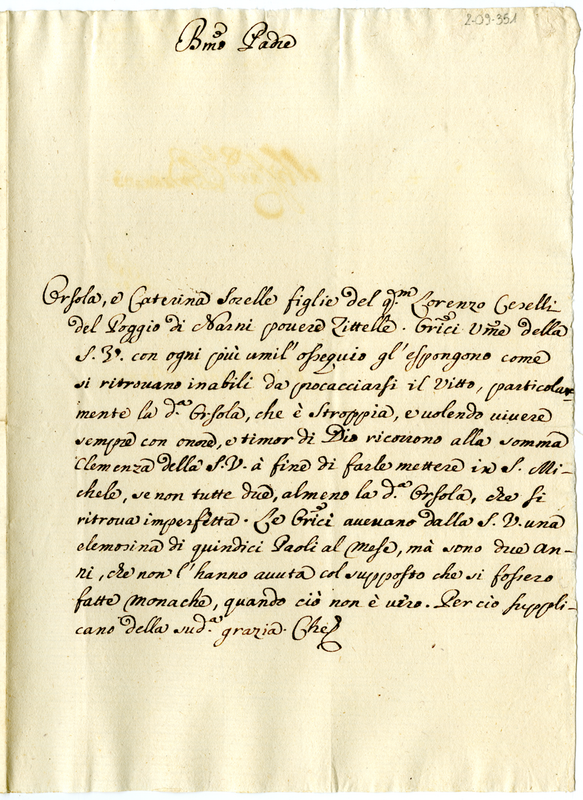 2-09-351
Bmo Padre
Orsola, e Caterina Sorelle figlie del qm Lorenzo Ceselli
del Poggio di Narni povere Zittelle. Orici Vme della
S. V. con ogni più umil'ossequio gl'espongono come
si ritrovano inabili da procacciarsi il Vitto, particolar
mente la d.a Orsola, che è stroppia, e volendo vivere
sempre con onore, e timor di Dio ricorrono alla somma
Clemenza della S. V. à fine di farle mettere in S. Mi-
chele, se non tutte due, almeno la d.a Orsola, che si
ritrova imperfetta. Le Orici avevano dalla S. V. una
elemosina di quindici Paoli al Mese, mà sono due an-
ni, che non l'hanno avuta col supposto che si fossero
fatte Monache, quando ciò non è vero. Per cio suppli-
cano della sud.a grazia. Che